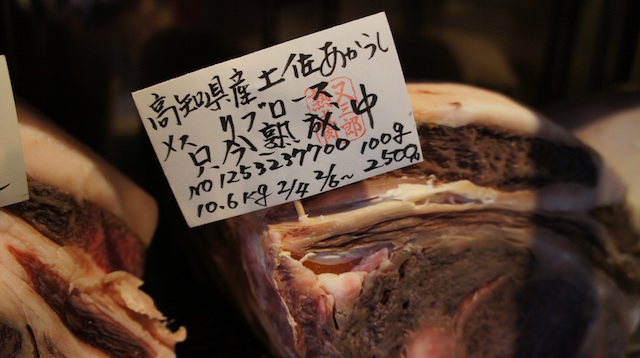 高知県産土佐あかうし
メス リブロース
只今熟放中
又三郎
熟肉
NO 1253237700 100g
10.6kg 2/4 2/6~ 2500円